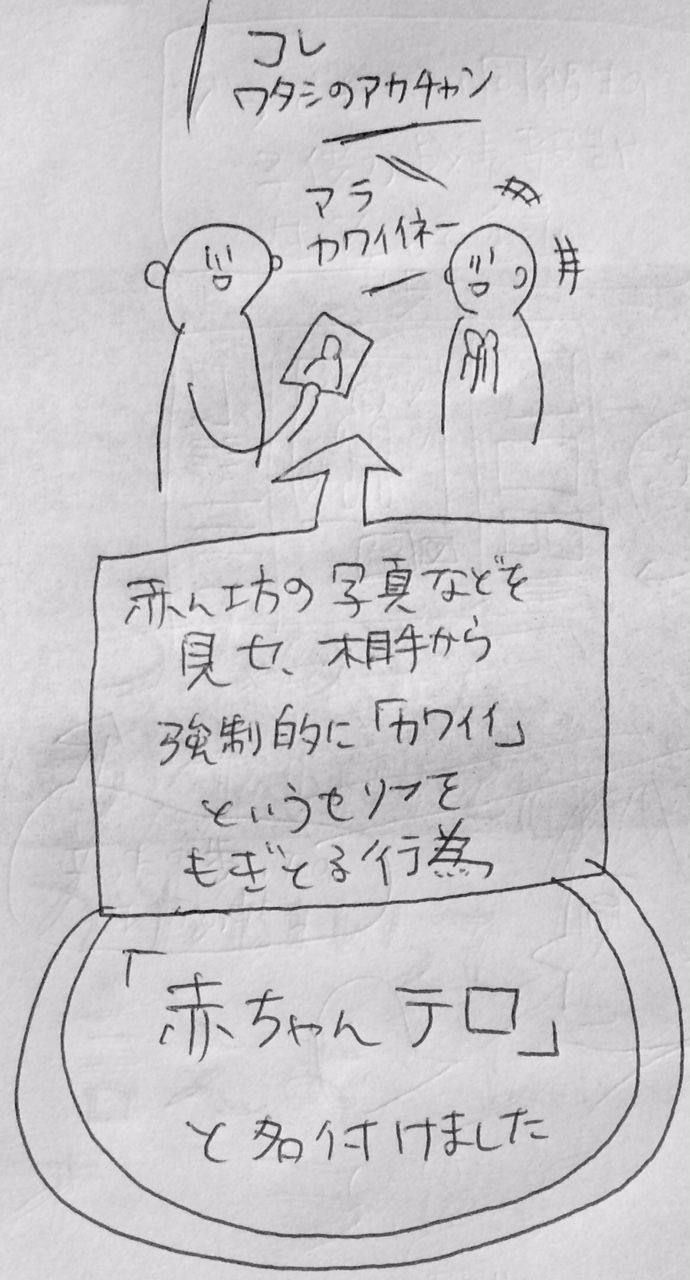 コレ
ワタシのアカチャン
アラ
カワイイネー
赤ん坊の写真などを
見せ、相手から
強制的に「カワイイ」
というセリフを
もぎとる行為
「赤ちゃんテロ」
と名付けました